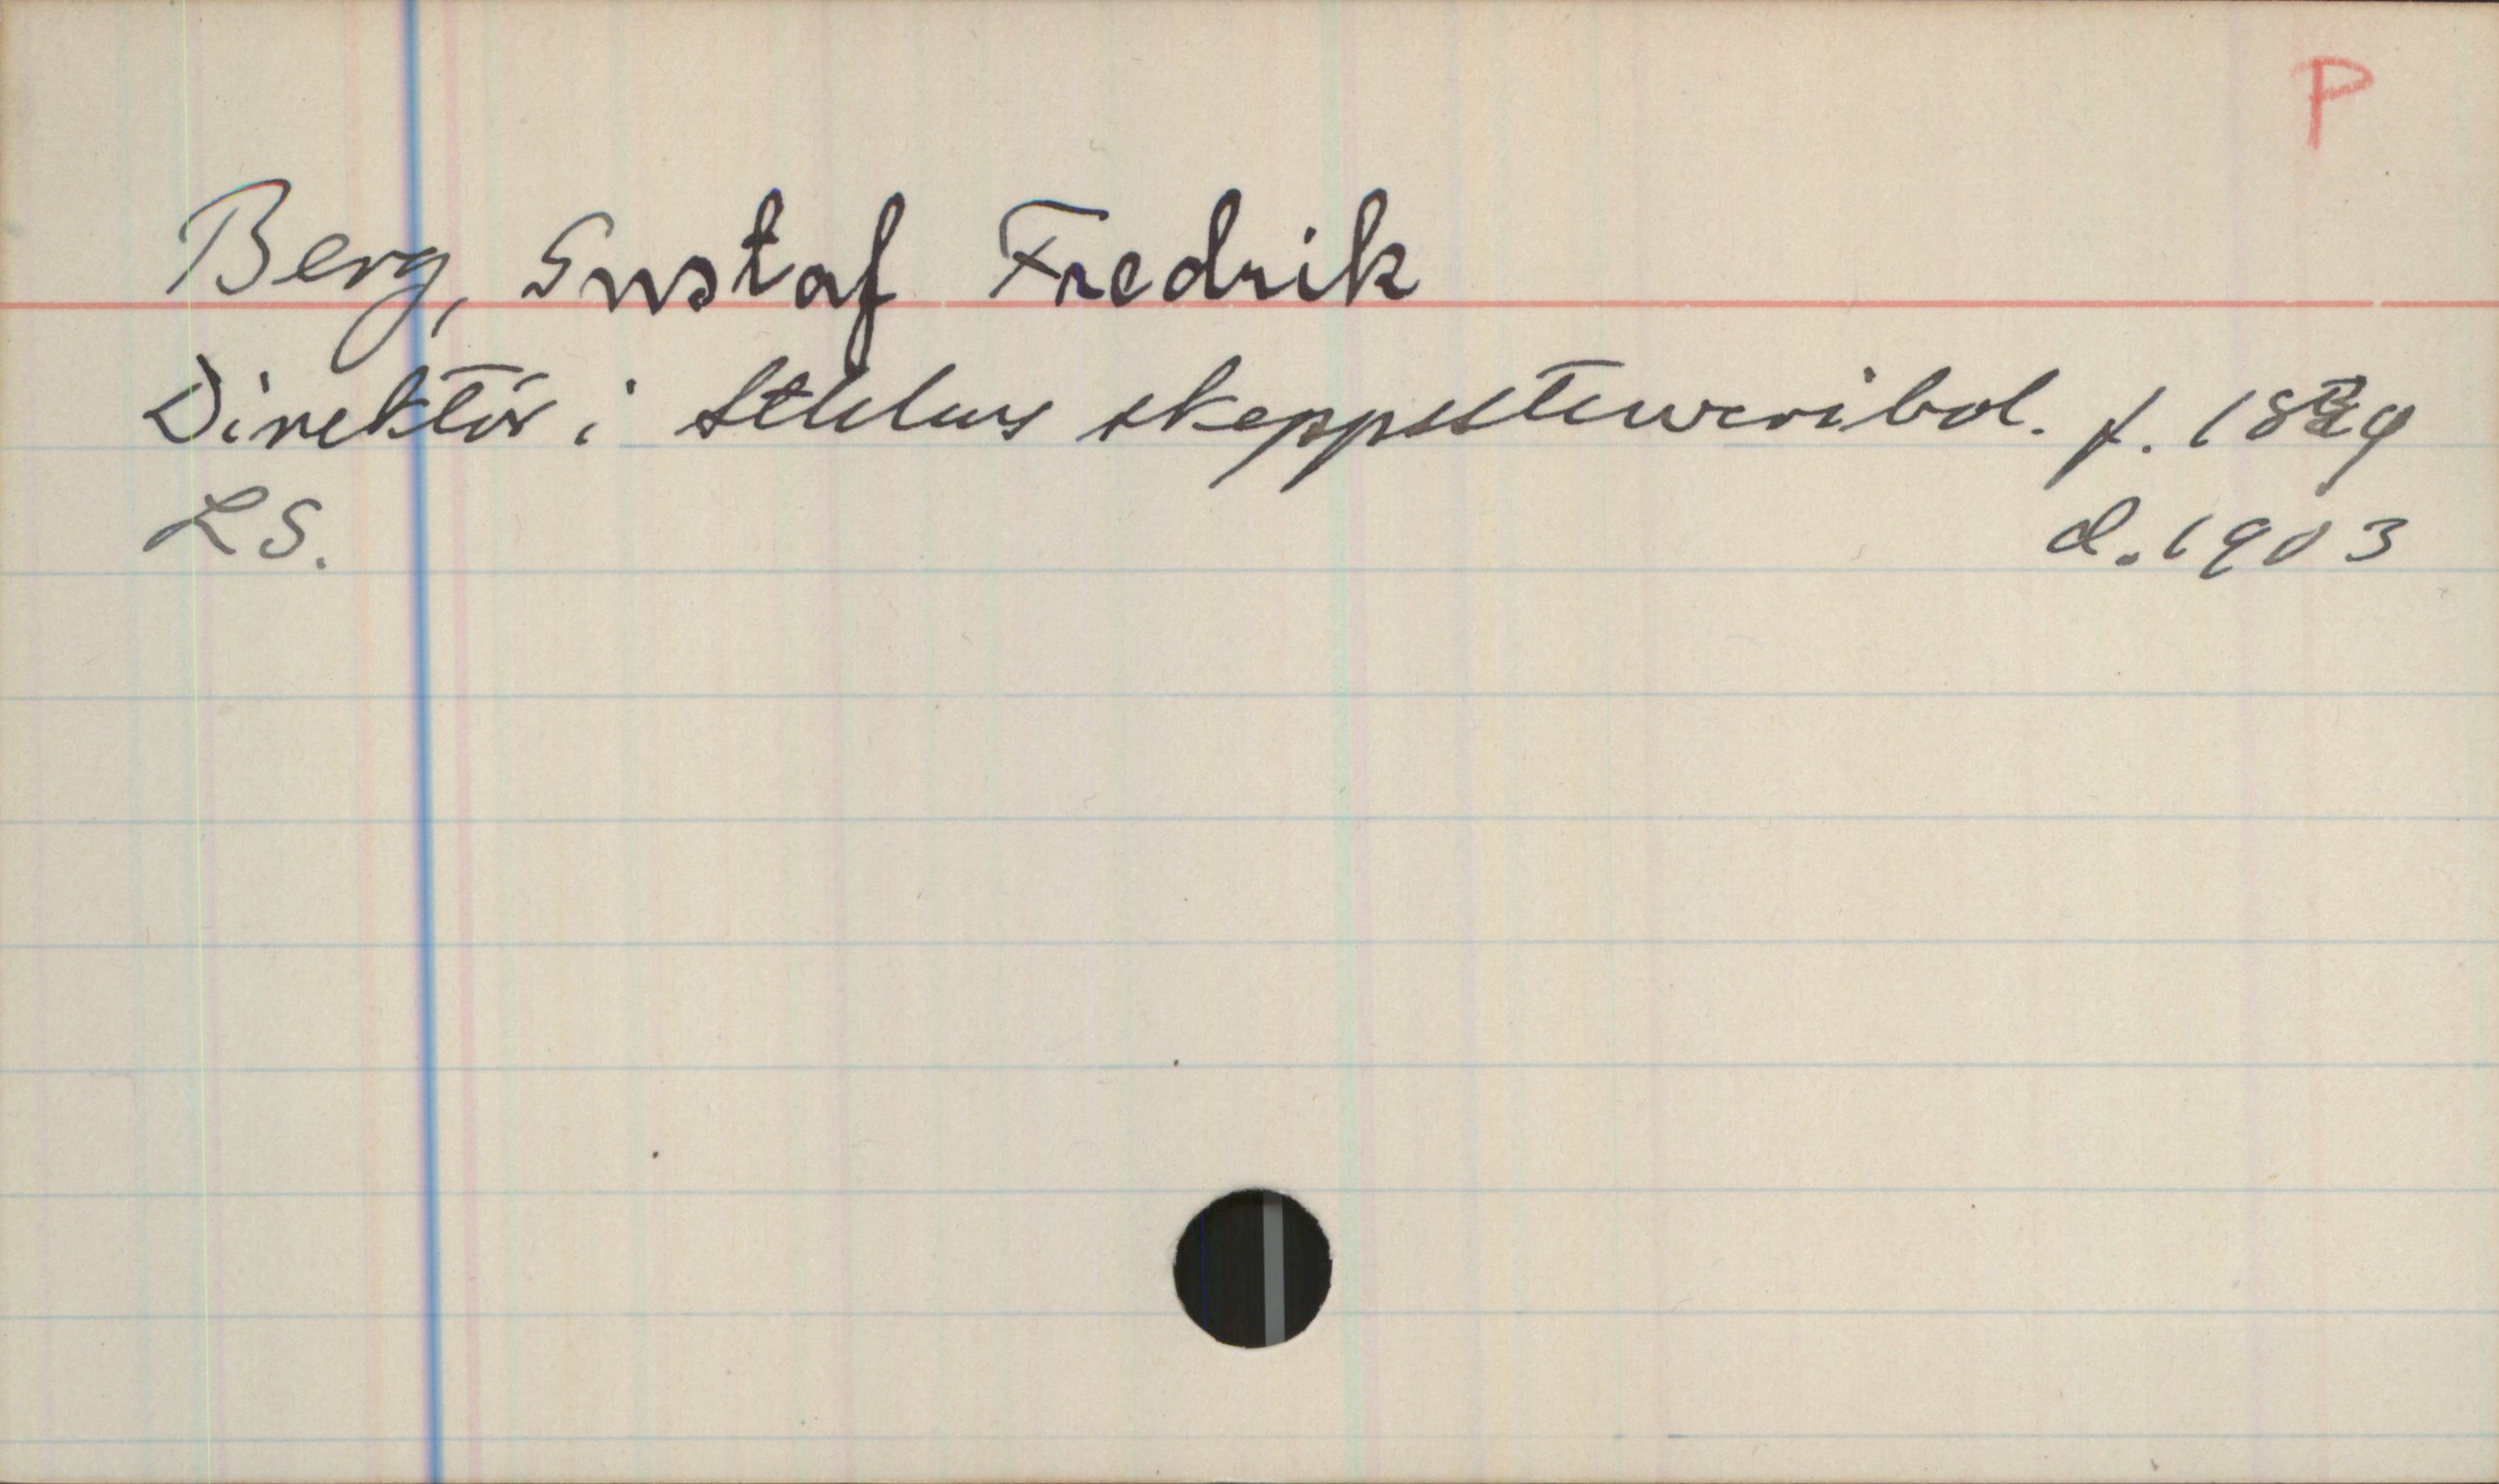 P
Berg, Gustaf Fredrik
Direktör i Sthlms skeppsstuveribol. f.
LS. d. 1903